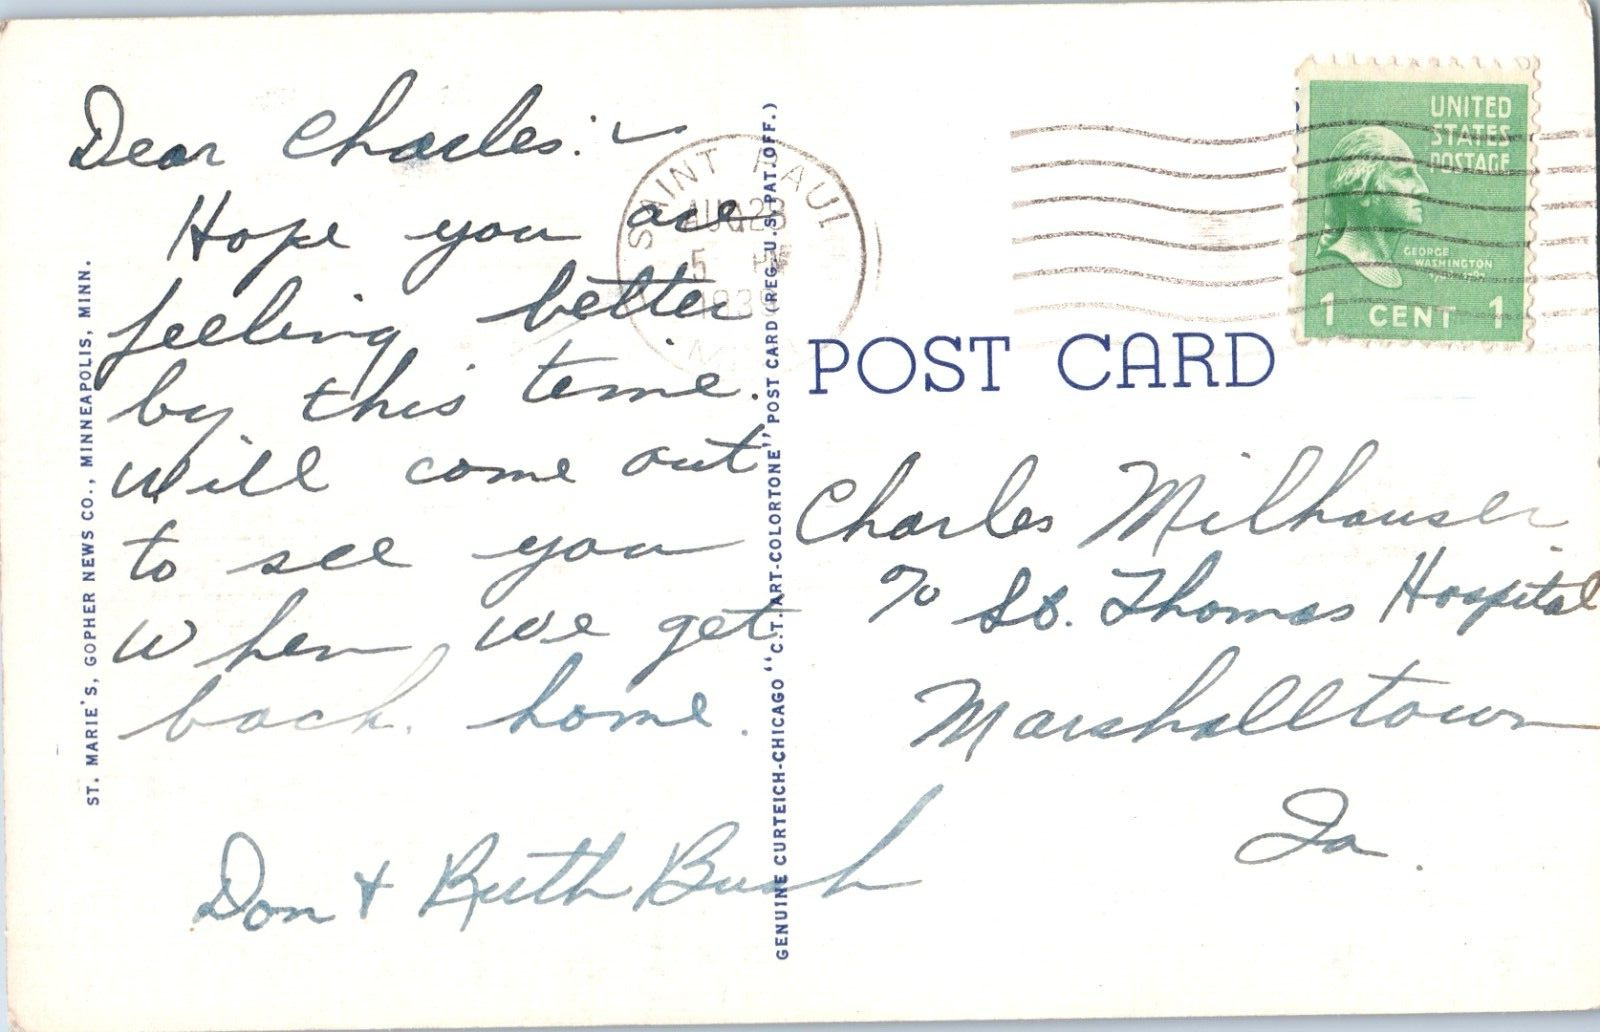 Dear Charles:
Hope you are
feeling better
by this time.
will come out
to see you
when we get
back home.
Don + Ruth Bush
ST. MARIE'S, GOPHER NEWS CO., MINNEAPOLIS, MINN.
GENUINE CURTEICH-CHICAGO "C.T. ART-COLORTONE" POST CARD (REG. U.S. PAT. OFF.)
SAINT PAUL
AUG 23
5 PM
1939
POST CARD
UNITED
STATES
POSTAGE
GEORGE
WASHINGTON
1 CENT 1
Charles Milhauser
% St. Thomas Hospital
Marshalltown
Ia.